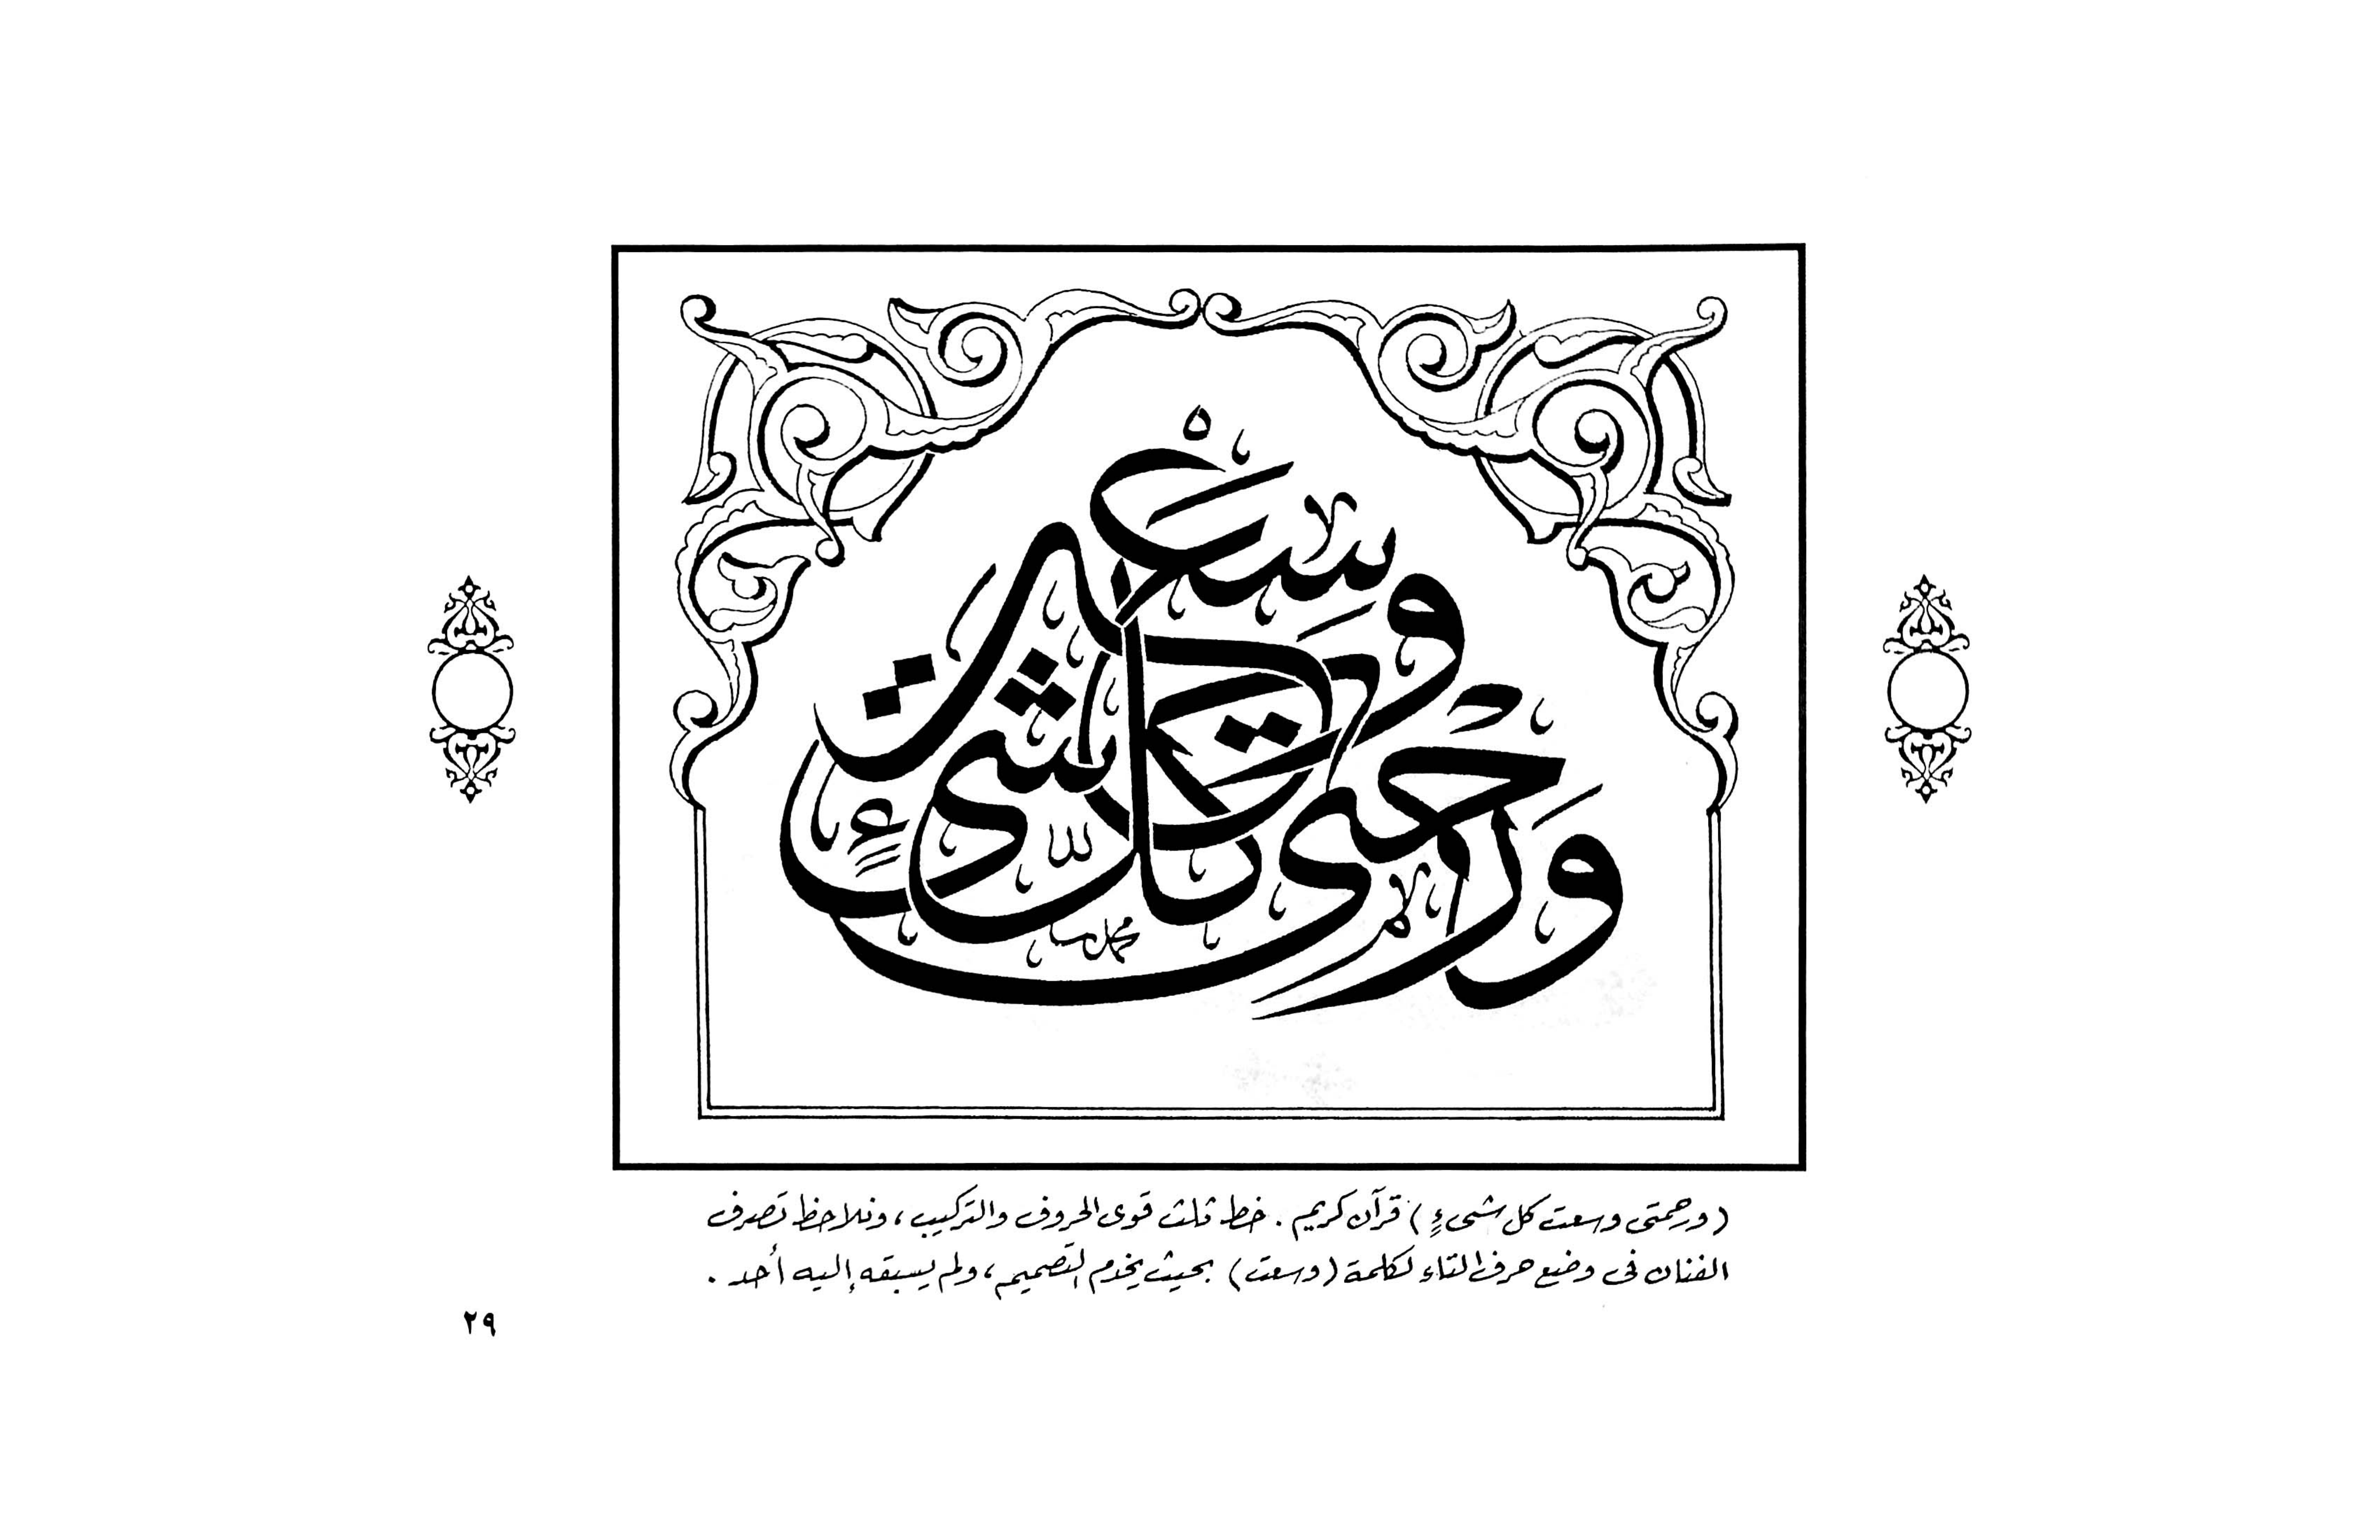 ورحمتي وسعت كل شيء
(ورحمتى وسعت كل شىءٍ) قرآن كريم . خط ثلث قوى الحروف والتركيب ، ونلاحظ تصرف
الفنان فى وضع حرف التاء لكلمة (وسعت) بحيث يخدم التصميم ، ولم يسبقه إليه أحد .
٢٩